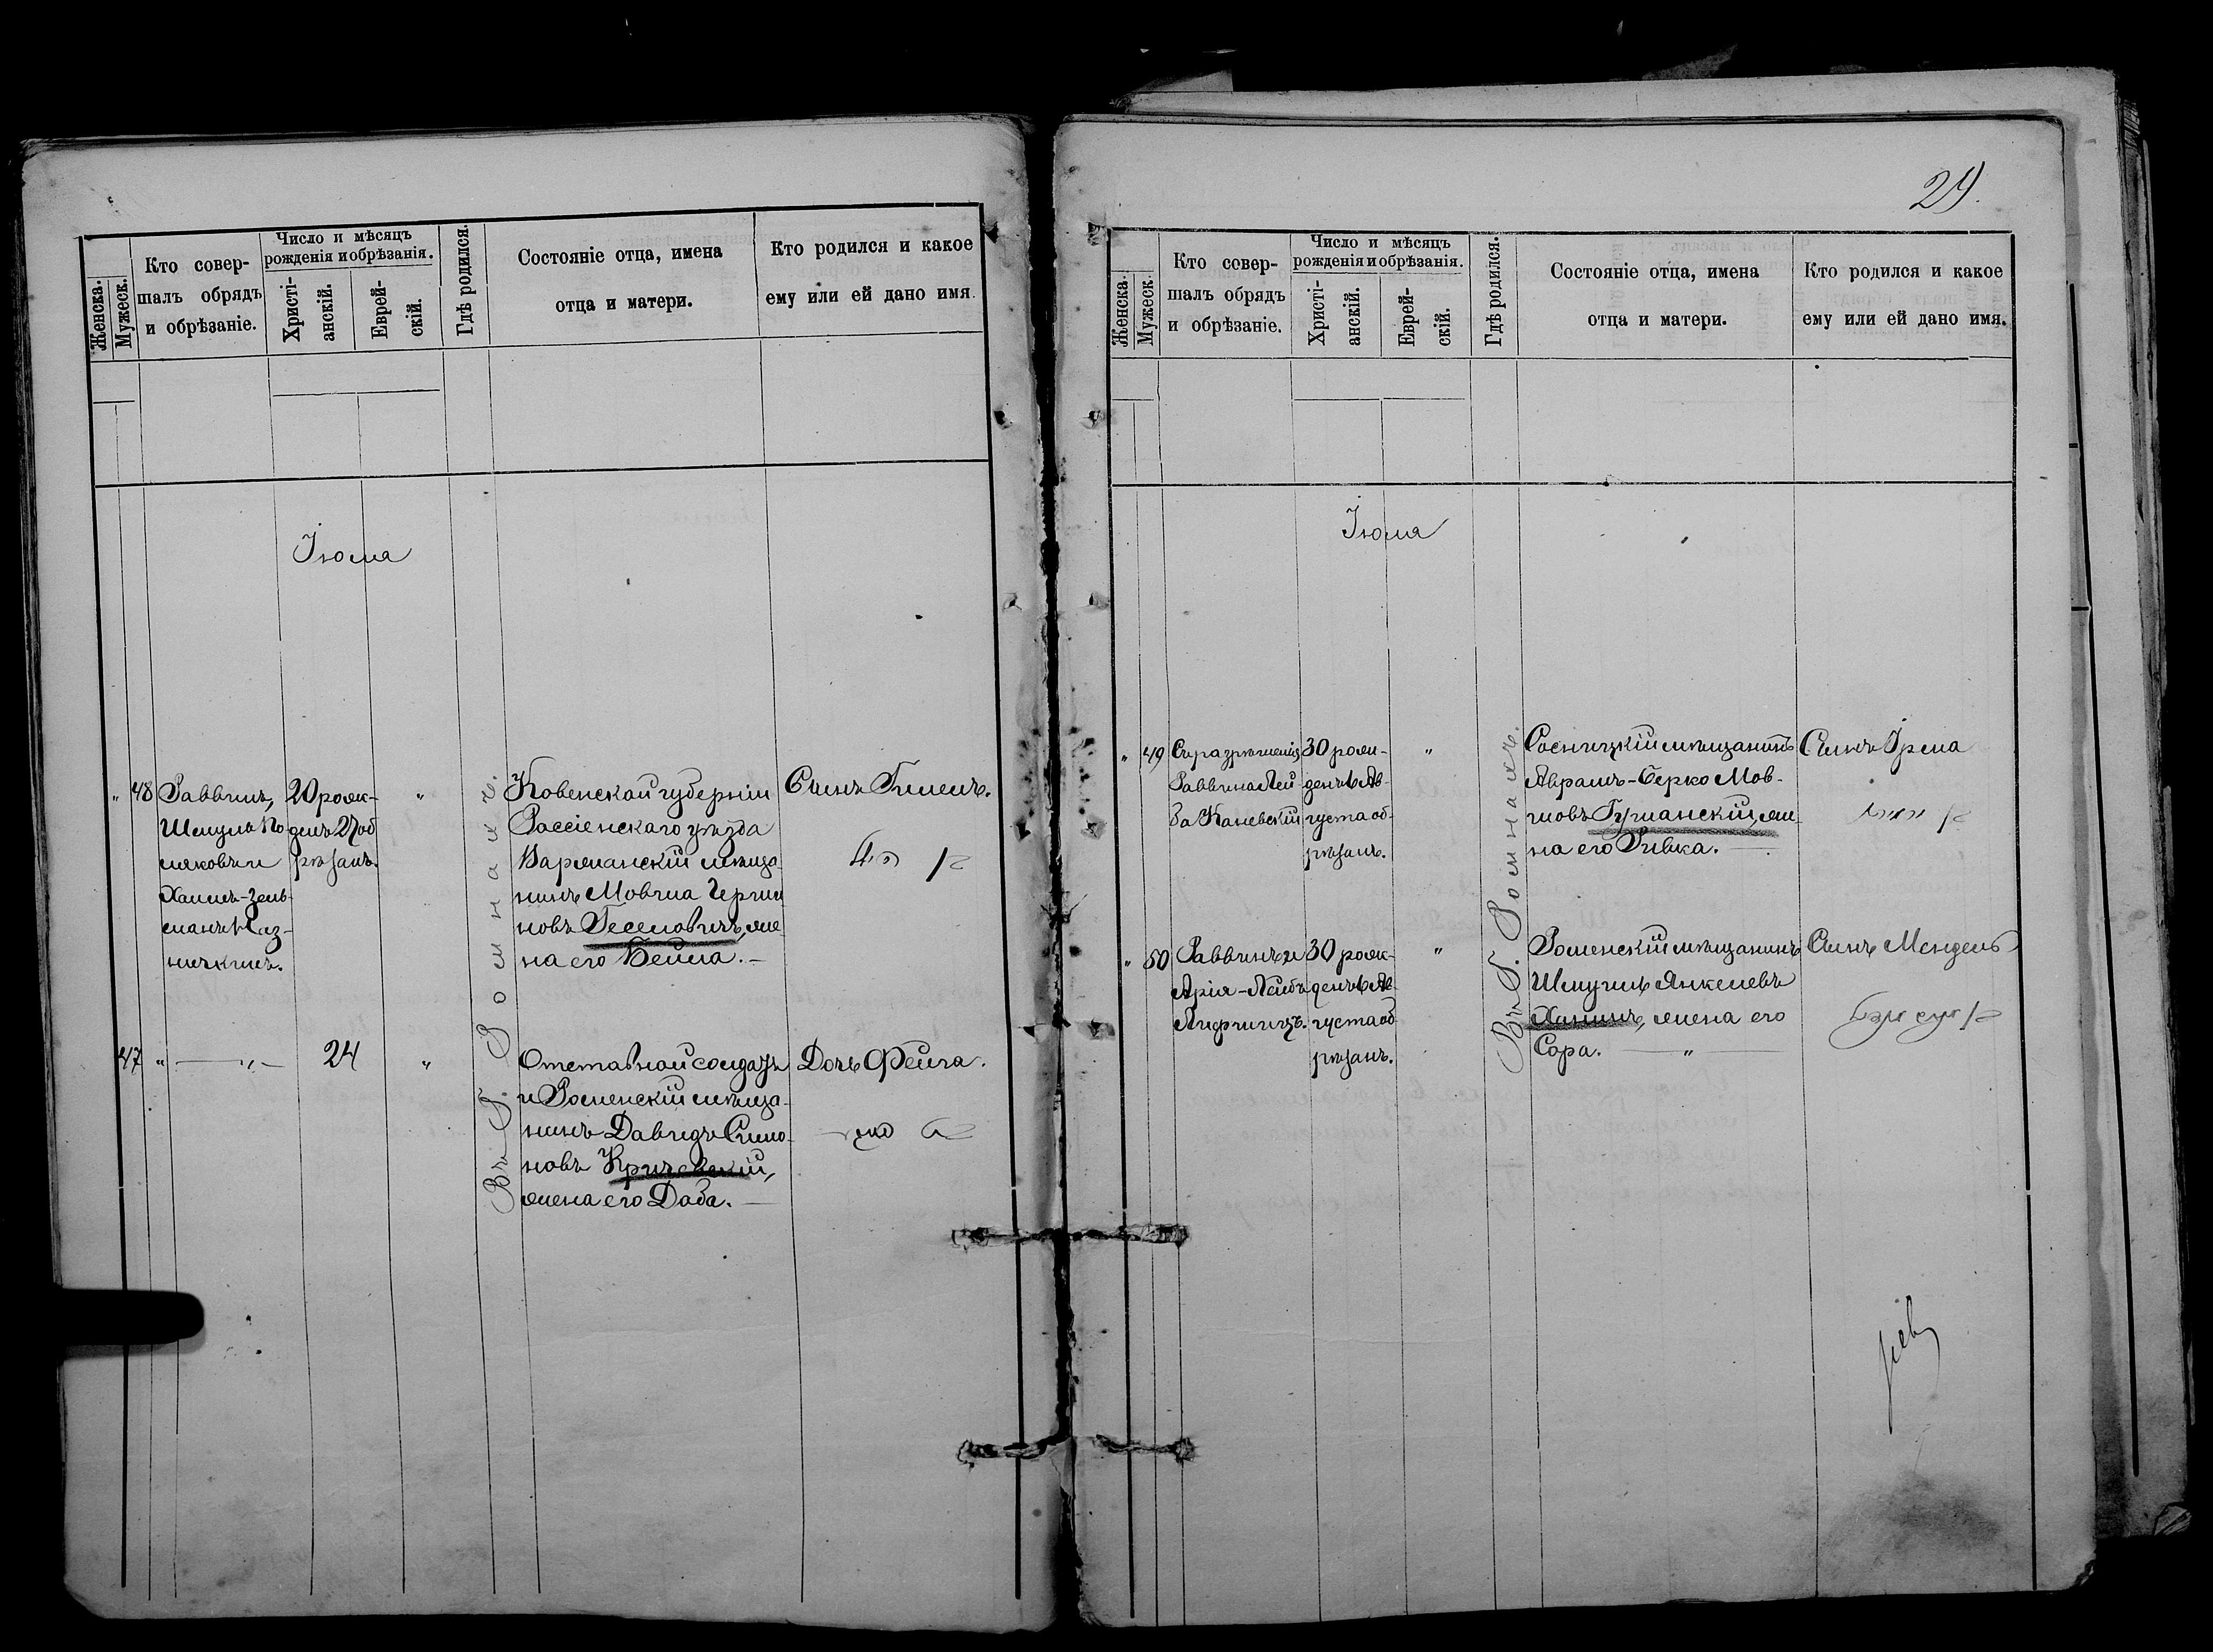 Женска.
Мужеск.
Кто совер-
шалъ обрядъ
и обрѣзаніе.
Число и мѣсяцъ
рожденія и обрѣзанія.
Христі-
анскій.
Еврей-
скій.
Гдѣ родился.
Состояніе отца, имена
отца и матери.
Кто родился и какое
ему или ей дано имя.
Іюля
Въ Г. Ромнахъ.
" 48
Раввинъ,
Шмуль По
ляковъ и
Хаимъ-Зель-
манъ Каз-
20 рож-
денъ 27 об
рѣзанъ.
"
Ковенской губерніи
Россіенскаго уѣзда
мѣща-
нинъ Мовша
новъ же-
на его Бейла.
Сынъ Гилелъ.
47 "
— " —
24
"
Отставной солдатъ
и Роменскій мѣща-
нинъ Давидъ Симо-
новъ Кричевскій,
жена его Доба.
Дочь Фейга.
29.
Женска.
Мужеск.
Кто совер-
шалъ обрядъ
и обрѣзаніе.
Число и мѣсяцъ
рожденія и обрѣзанія.
Христі-
анскій.
Еврей-
скій.
Гдѣ родился.
Состояніе отца, имена
отца и матери.
Кто родился и какое
ему или ей дано имя.
Іюля
Въ Г. Ромнахъ.
" 49
Съ разрѣшенія
Раввина Лей-
ба Каневскій
30 рож-
денъ 6 Ав-
густа об-
рѣзанъ.
"
Сосницкій мѣщанинъ
Аврамъ-Берко Мов-
шовъ Гуманскій, же-
на его Ривка.
Сынъ
" 50
Раввинъ и
Арія-Лейбъ
30 рож-
денъ 6 Ав-
густа об
рѣзанъ.
"
Роменскій мѣщанинъ
Шмуилъ Янкелевъ
Ханинъ, жена его
Сора. — " —
Сынъ Мендель